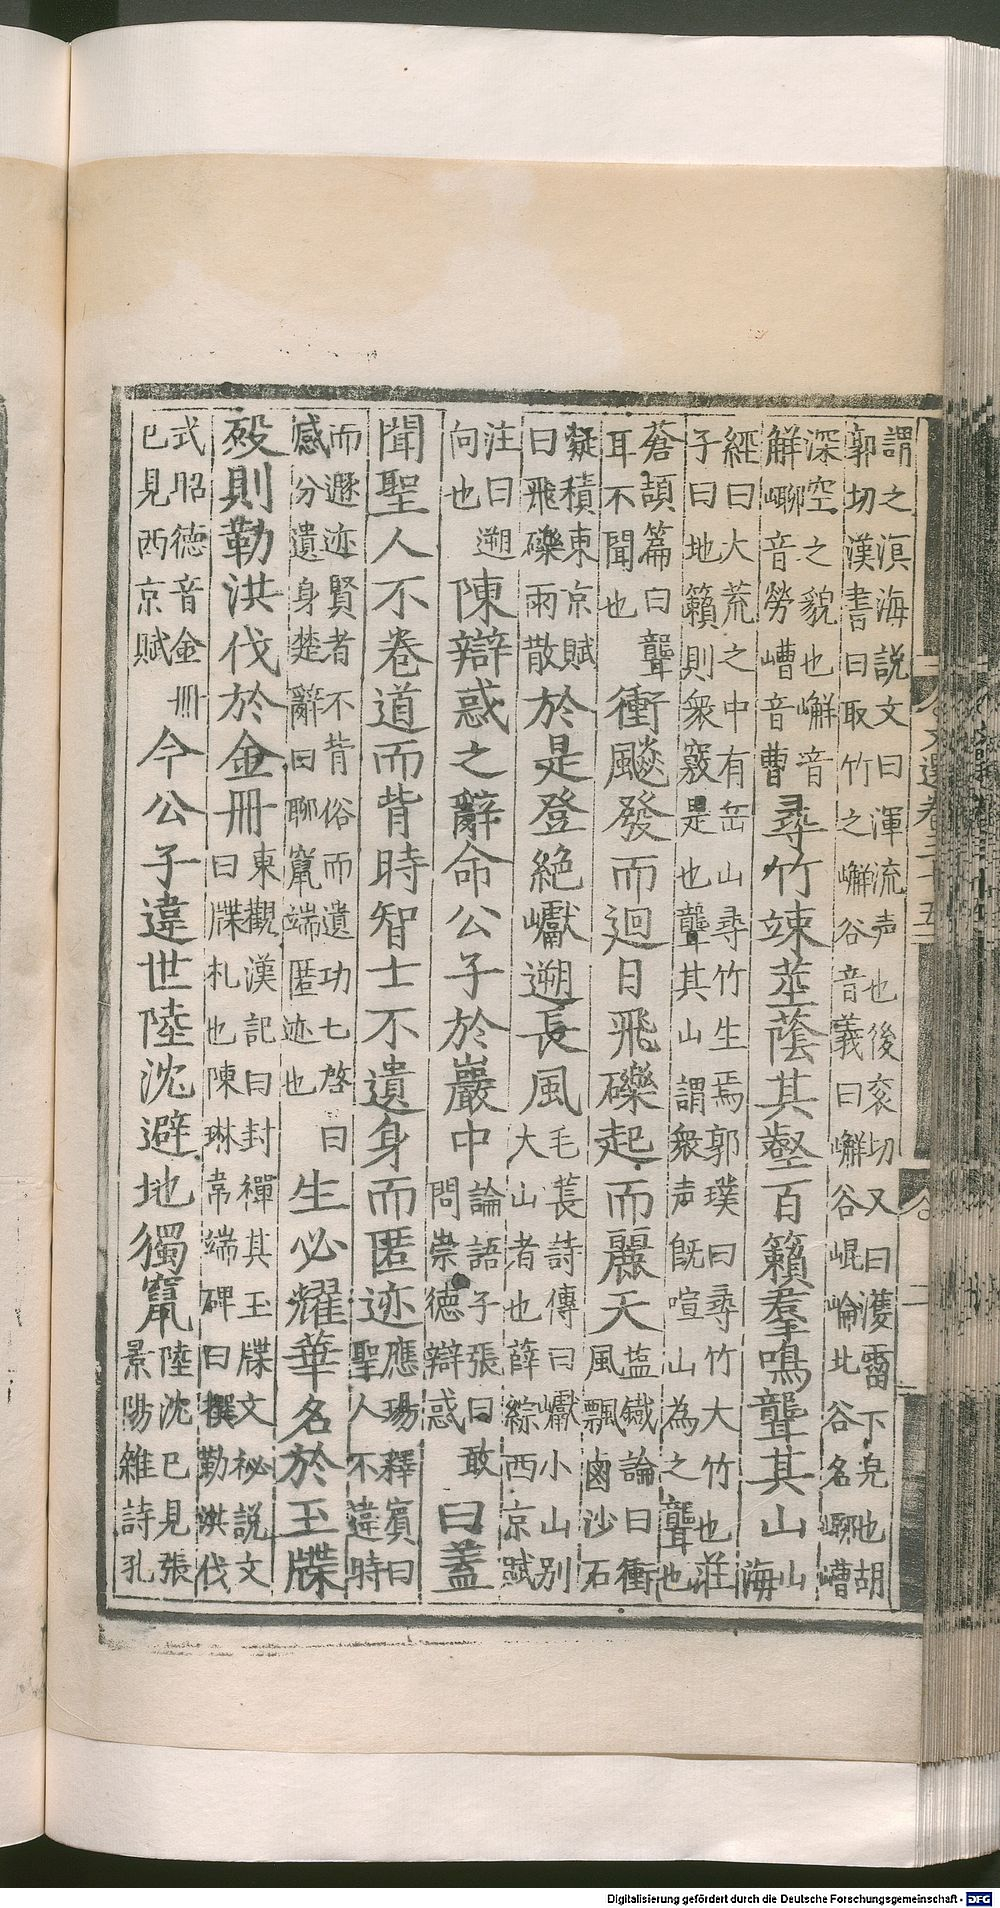 謂之溟海說文曰渾流声也後衮切又曰濩霤下皃也胡
郭切漢書曰取竹之嶰谷音義曰嶰谷崐崘北谷名嶰嘈
深空之貌也嶰音
解嶚音勞嶆音曹尋竹竦莖蔭其壑百籟羣鳴聾其山山海
經曰大荒之中有岳山尋竹生焉郭璞曰尋竹大竹也莊
子曰地籟則衆竅是也聾其山謂衆声旣喧山為之聾也
蒼頡篇曰聾
耳不聞也衝飇發而迴日飛礫起而麗天塩鐵論曰衝
風飄鹵沙石
凝積東京賦
曰飛礫雨散於是登絕巘遡長風毛萇詩傳曰巘小山别
大山者也薛綜西京賦
注曰遡
向也陳辯惑之辭命公子於巖中論語子張曰敢
問崇德辯惑曰蓋
聞聖人不卷道而背時智士不遺身而匿迹應瑒釋賓曰
聖人不違時
而遯迹賢者不背俗而遺功七啓曰
感分遺身楚辭曰聊竄端匿迹也生必耀華名於玉牒
殁則勒洪伐於金冊東觀漢記曰封禪其玉牒文秘說文
曰牒札也陳琳韋端碑曰撰勒洪伐
式昭德音金冊
已見西京賦今公子違世陸沈避地獨竄陸沈已見張
景陽雜詩孔
Digitalisierung gefördert durch die Deutsche Forschungsgemeinschaft - DFG